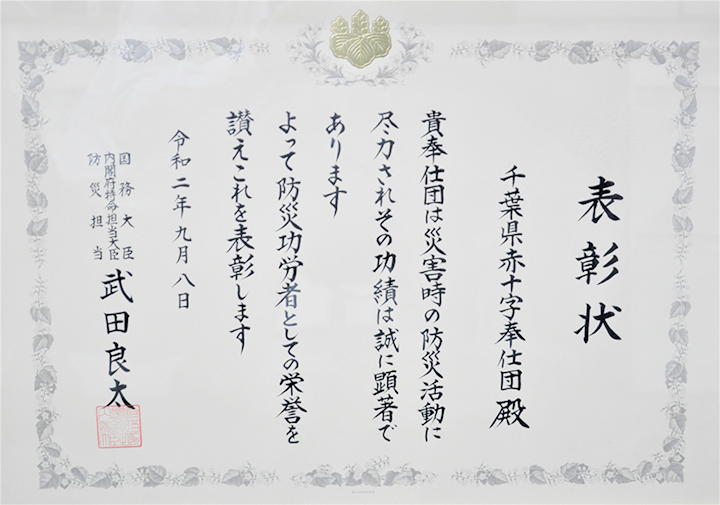 表彰状
千葉県赤十字奉仕団殿
貴奉仕団は災害時の防災活動に
尽力されその功績は誠に顕著で
あります
よって防災功労者としての栄誉を
讃えこれを表彰します
令和二年九月八日
国務大臣
内閣府特命担当大臣
防災担当
武田良太